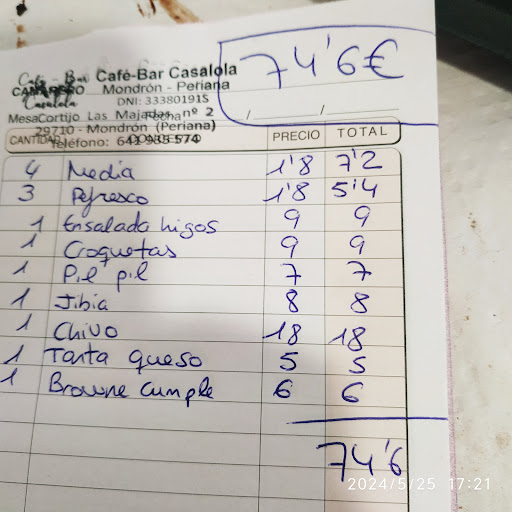 74'6€
Café - Bar Café-Bar Casalola
CAMARERO Mondrón - Periana
Casalola DNI: 33380191S
Mesa Cortijo Las Majadas nº 2 Fecha / /
29710 - Mondrón (Periana)
CANTIDAD Teléfono: 641 985 574 PRECIO TOTAL
4 Media 1'8 7'2
3 Refresco 1'8 5'4
1 Ensalada higos 9 9
1 Croquetas 9 9
1 Pil pil 7 7
1 Jibia 8 8
1 Chivo 18 18
1 Tarta queso 5 5
1 Browne cumple 6 6
74'6
2024/5/25 17:21